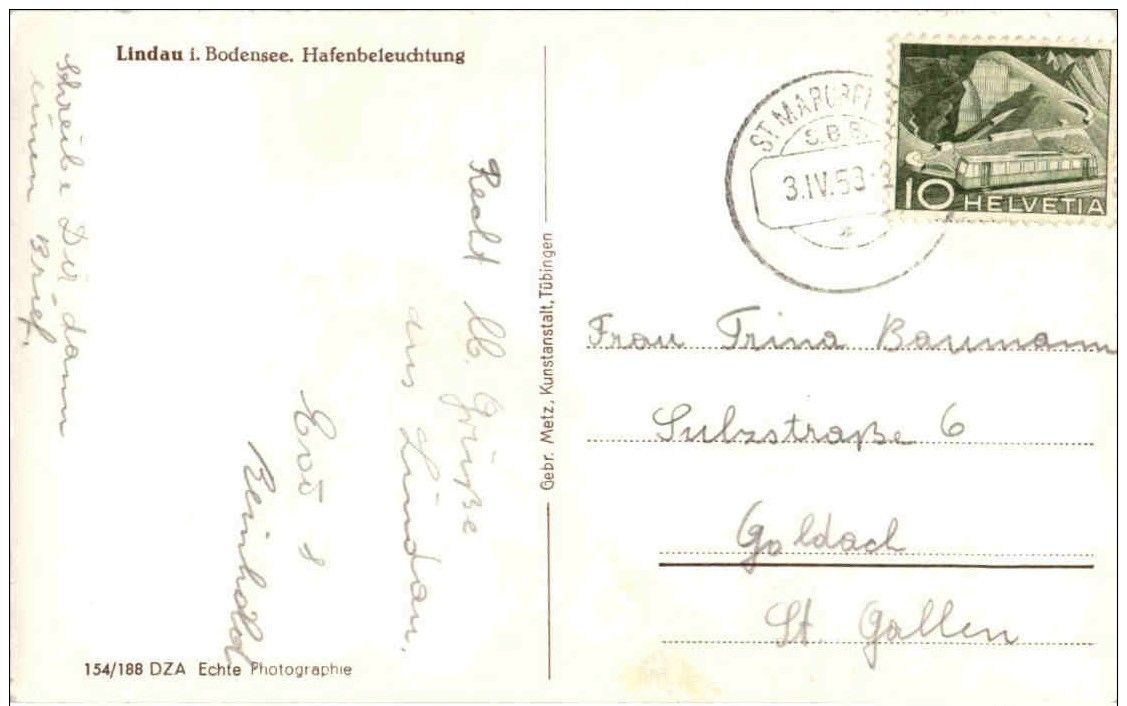 Lindau i. Bodensee. Hafenbeleuchtung
Schreibe Dir dann
einen Brief.
Recht lb. Grüße
aus Lindau.
Reinhold
154/188 DZA Echte Photographie
Gebr. Metz, Kunstanstalt, Tübingen
S.B.B.
3.IV.53
10 HELVETIA
Frau Trina Baumann
Sulzstraße 6
Goldach
St. Gallen